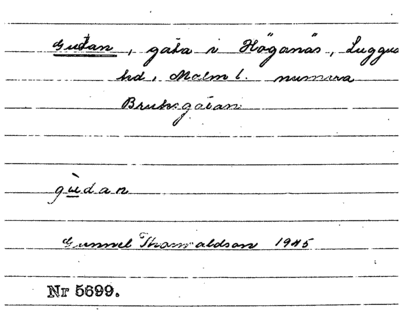 Gutan, gata i Höganäs, Luggud
hd, Malm l. numera
Bruksgatan
gùdan
Gunnel Thorvaldson 1945
Nr 5699.